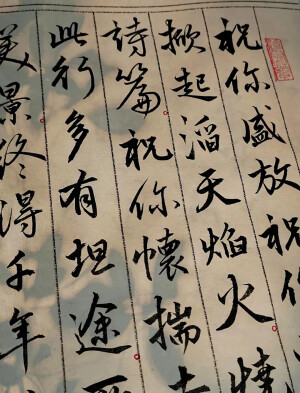 祝你盛放祝你
掀起滔天焰火燒
詩篇祝你懷揣
此行多有坦途
美景終得千年